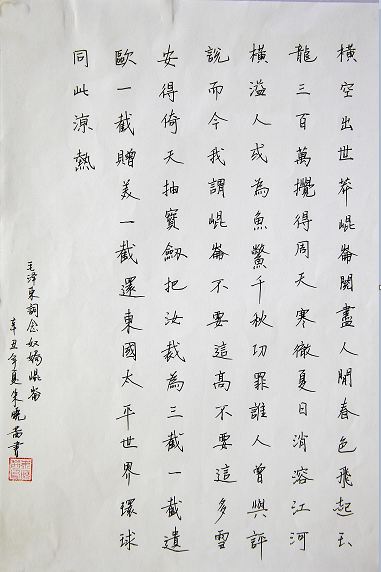 橫空出世莽崐崙閱盡人間春色飛起玉
龍三百萬攪得周天寒徹夏日消溶江河
橫溢人或為魚鱉千秋功罪誰人曾與評
說而今我謂崐崙不要這高不要這多雪
安得倚天抽寶劍把汝裁為三截一截遺
歐一截贈美一截還東國太平世界環球
同此涼熱
毛泽東詞念奴嬌崐崙
辛丑年夏朱曉書